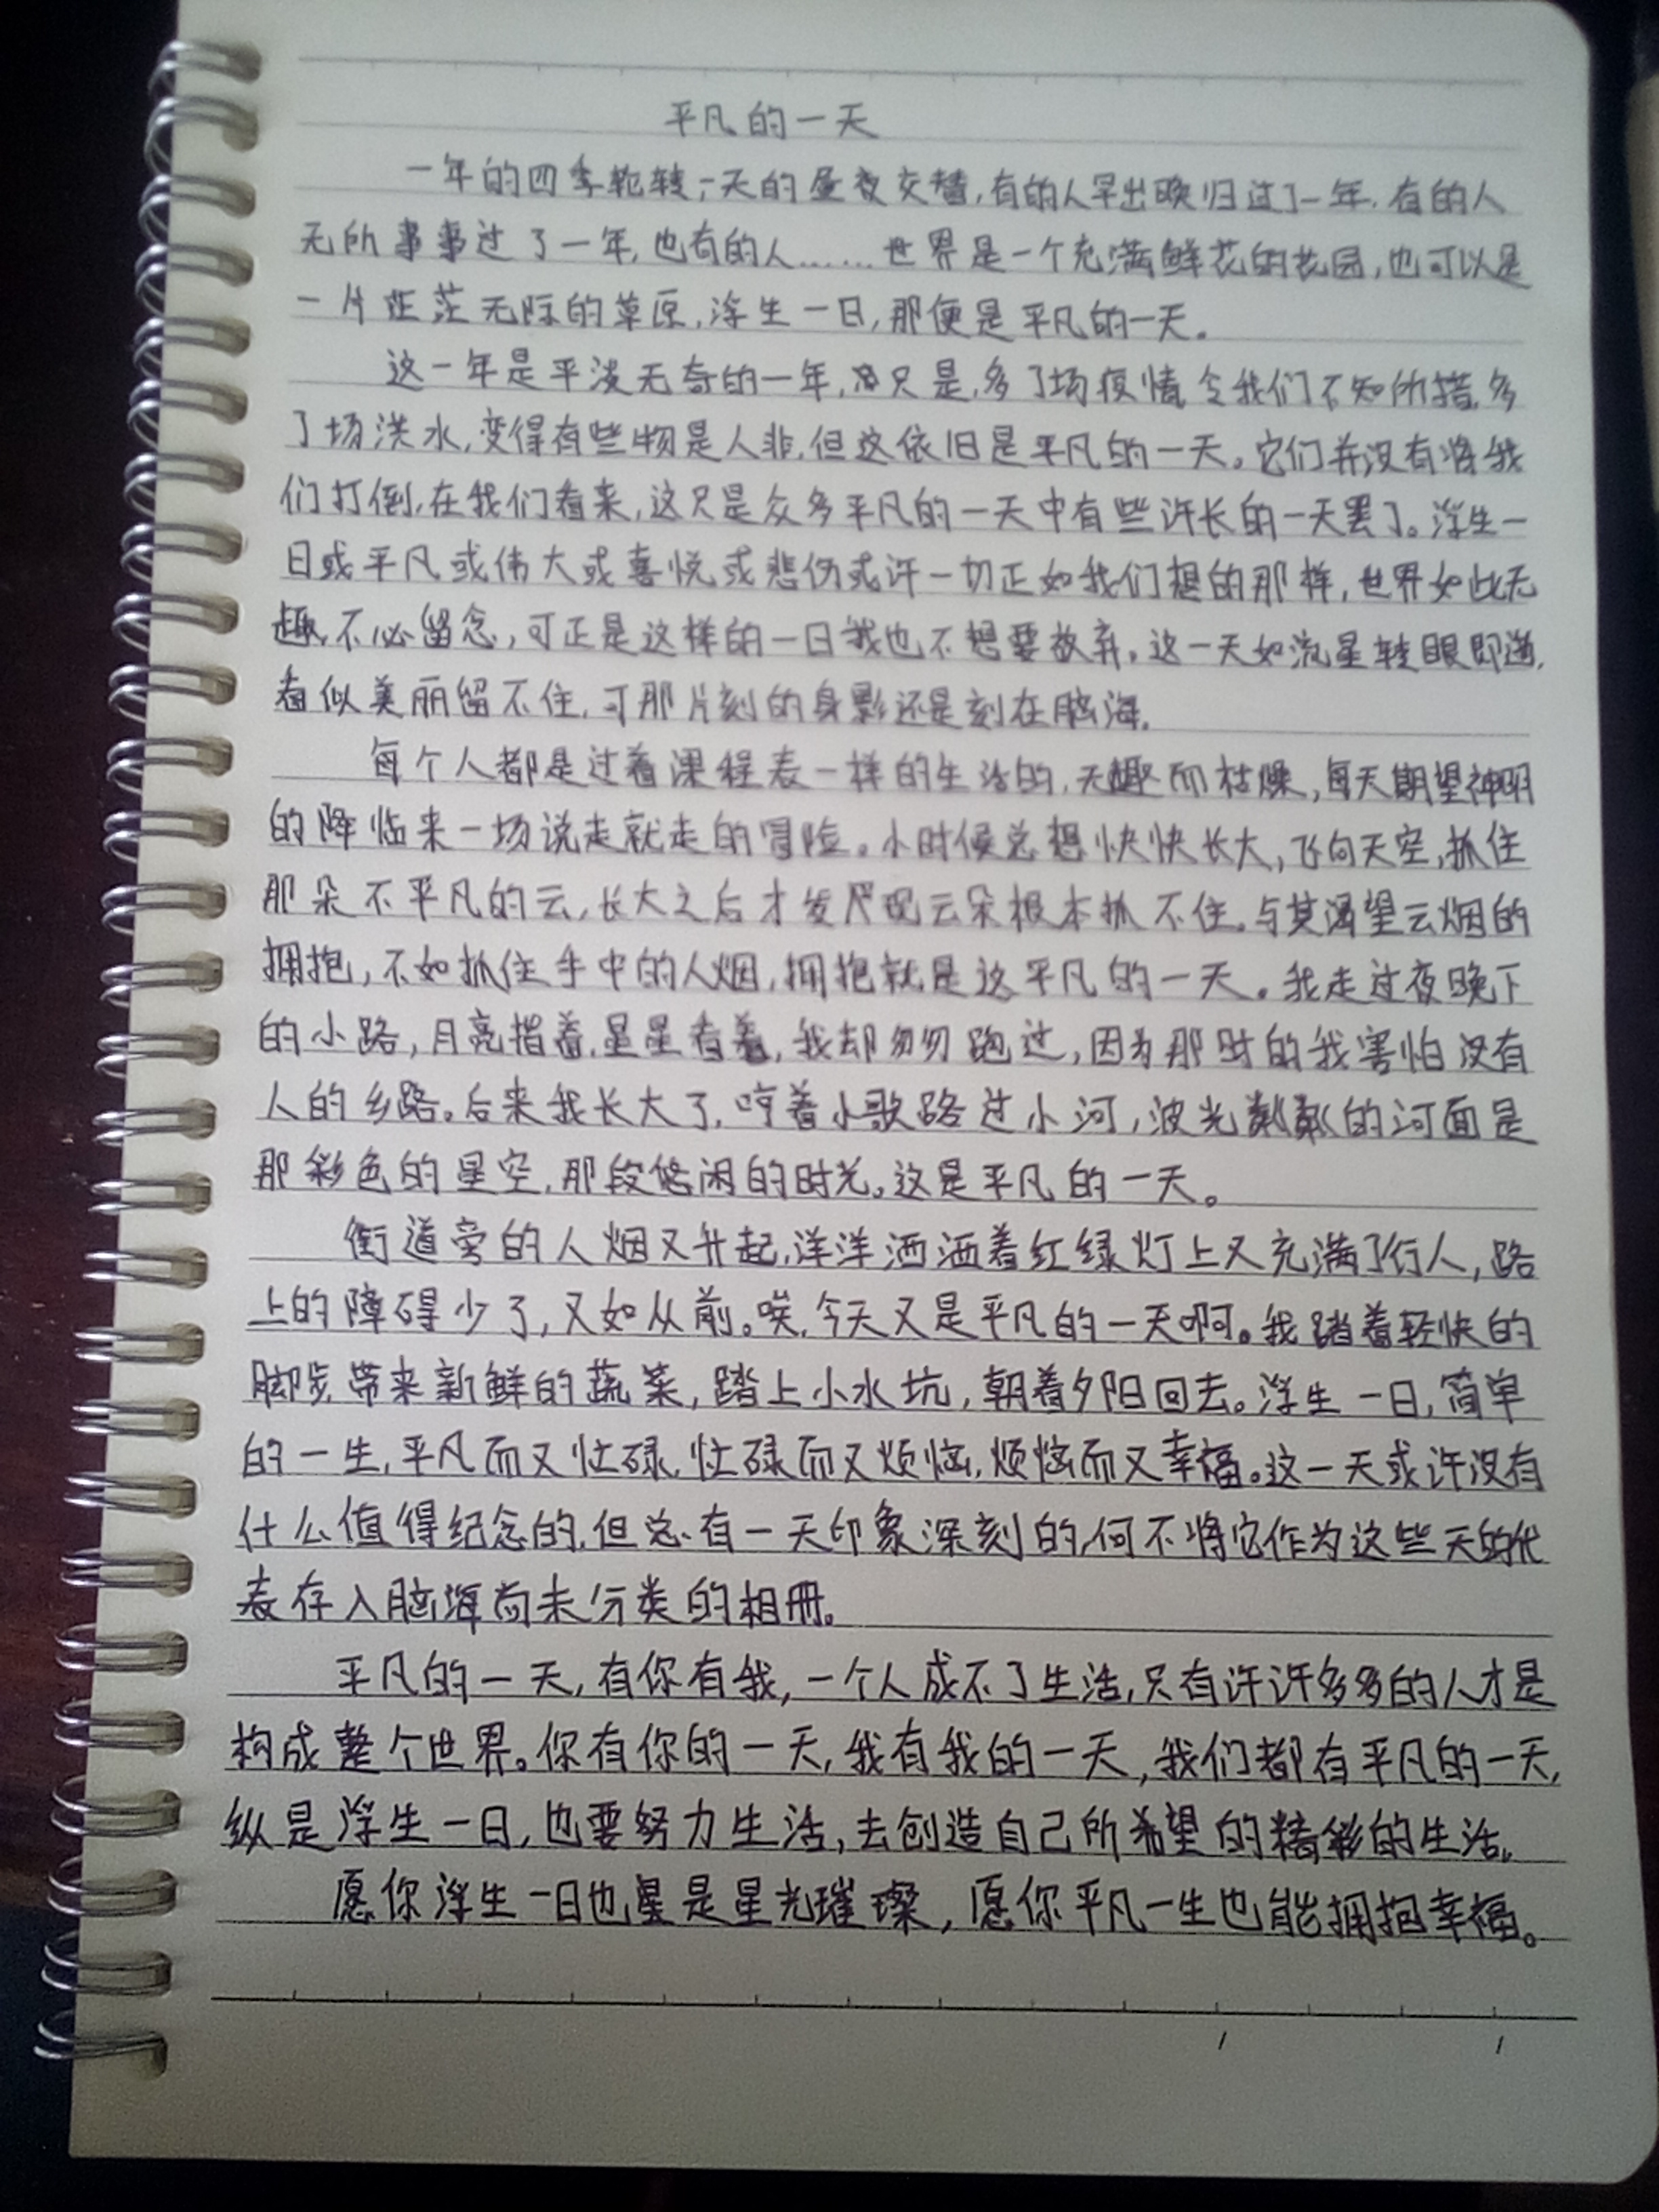 平凡的一天
一年的四季轮转,一天的昼夜交替,有的人早出晚归过了一年,有的人
无所事事过了一年,也有的人……世界是一个充满鲜花的花园,也可以是
一片茫茫无际的草原,浮生一日,那便是平凡的一天。
这一年是平淡无奇的一年,只是,多了场疫情,令我们不知所措,多
了场洪水,变得有些物是人非,但这依旧是平凡的一天。它们并没有将我
们打倒,在我们看来,这只是众多平凡的一天中有些许长的一天罢了。浮生一
日或平凡或伟大或喜悦或悲伤或许一切正如我们想的那样,世界如此无
趣,不必留念,可正是这样的一日我也不想要放弃。这一天如流星转眼即逝,
看似美丽留不住,可那片刻的身影还是刻在脑海。
每个人都是过着课程表一样的生活的,无趣而枯燥,每天期望神明
的降临来一场说走就走的冒险。小时候总想快快长大,飞向天空,抓住
那朵不平凡的云,长大之后才发现云朵根本抓不住。与其渴望云烟的
拥抱,不如抓住手中的人烟,拥抱就是这平凡的一天。我走过夜晚下
的小路,月亮指着,星星看着,我却匆匆跑过,因为那时的我害怕没有
人的乡路。后来我长大了,哼着小歌路过小河,波光粼粼的河面是
那彩色的星空,那段悠闲的时光。这是平凡的一天。
街道旁的人烟又升起,洋洋洒洒着红绿灯上又充满了行人,路
上的障碍少了,又如从前。唉,今天又是平凡的一天啊。我踏着轻快的
脚步,带来新鲜的蔬菜,踏上小水坑,朝着夕阳回去。浮生一日,简单
的一生,平凡而又忙碌,忙碌而又烦恼,烦恼而又幸福。这一天或许没有
什么值得纪念的,但总有一天印象深刻的,何不将它作为这些天的代
表存入脑海尚未分类的相册。
平凡的一天,有你有我,一个人成不了生活,只有许许多多的人才是
构成整个世界。你有你的一天,我有我的一天,我们都有平凡的一天,
纵是浮生一日,也要努力生活,去创造自己所希望的精彩的生活。
愿你浮生一日也是星光璀璨,愿你平凡一生也能拥抱幸福。